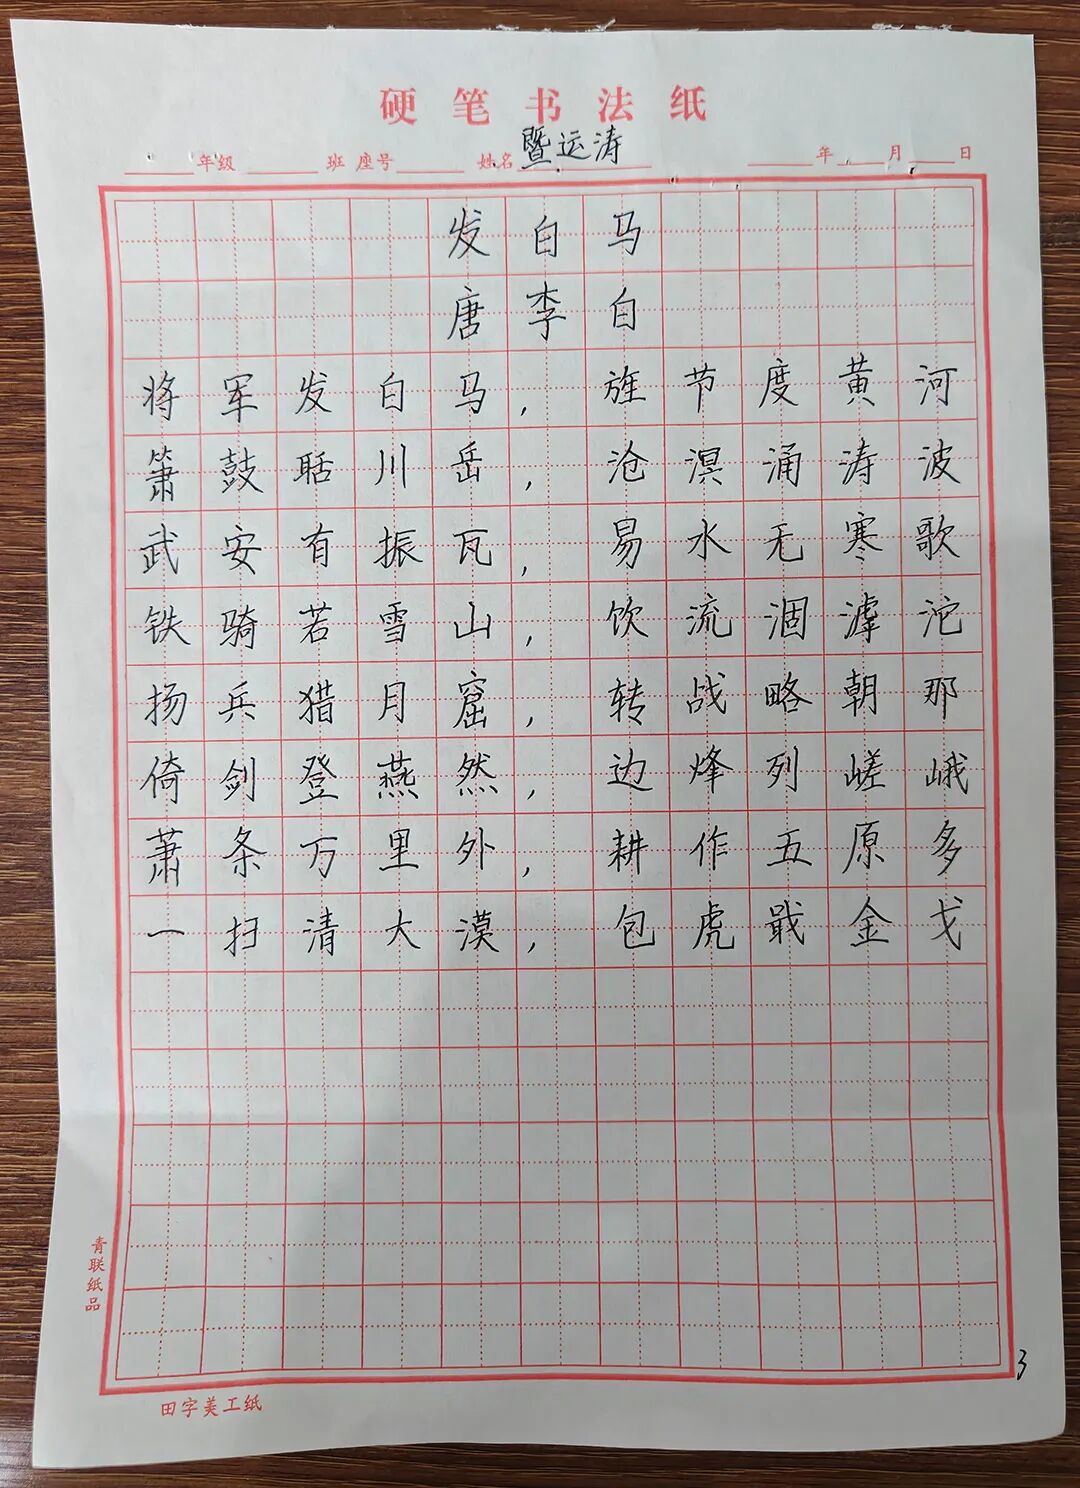 硬笔书法纸
年级 班 座号 姓名 暨运涛 年 月 日
发白马
唐李白
将军发白马，旌节度黄河
箫鼓聒川岳，沧溟涌涛波
武安有振瓦，易水无寒歌
铁骑若雪山，饮流涸滹沱
扬兵猎月窟，转战略朝那
倚剑登燕然，边烽列嵯峨
萧条万里外，耕作五原多
一扫清大漠，包虎戢金戈
青联纸品
田字美工纸
3